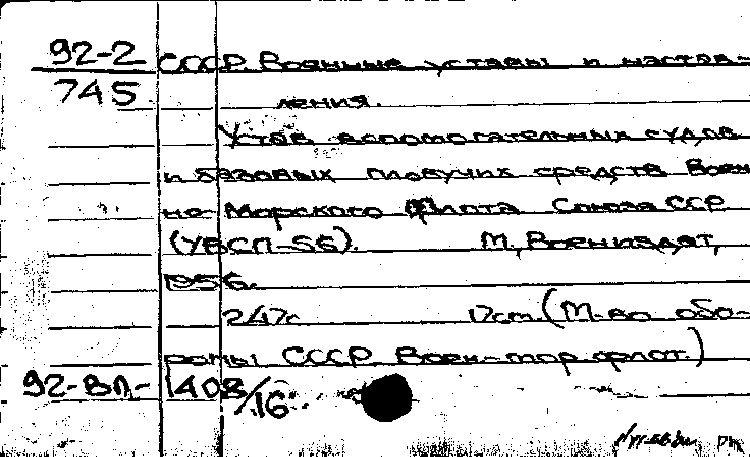 92-2 СССР. Военные уставы и настав-
745 ления.
Устав вспомогательных судов
и базовых плавучих средств Воен
но-Морского Флота Союза ССР
(УВСП-56). М., Воениздат,
1956.
247с 17см. (М-во обо-
роны СССР Воен-мор.флот.)
92-ВЛ-1408/16